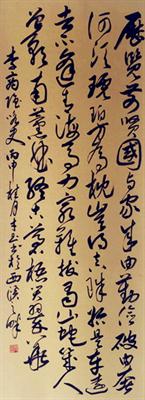 歷覽前賢國與家成由勤儉破由奢
何須琥珀方為枕豈得真珠始是車運
去不逢青海馬力窮難拔蜀山蛇幾人
曾預南薰曲終古蒼梧哭翠華
李商隱詠史丙申桂月於西溪之畔